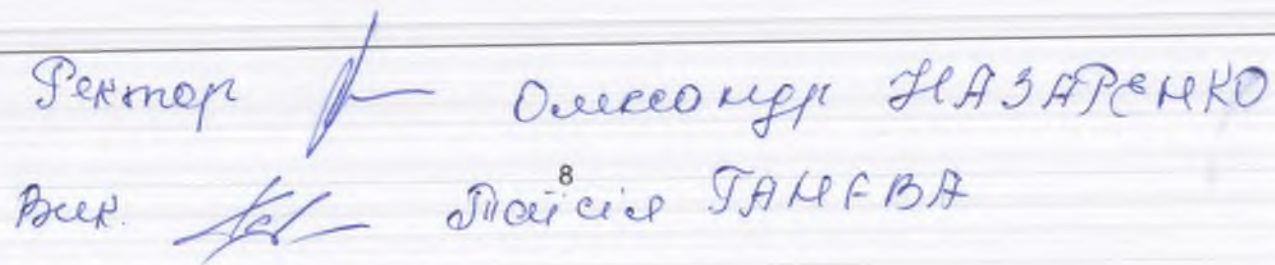 Ректор Олександр НАЗАРЕНКО
8
Вик. Таїсія ГАНЕВА